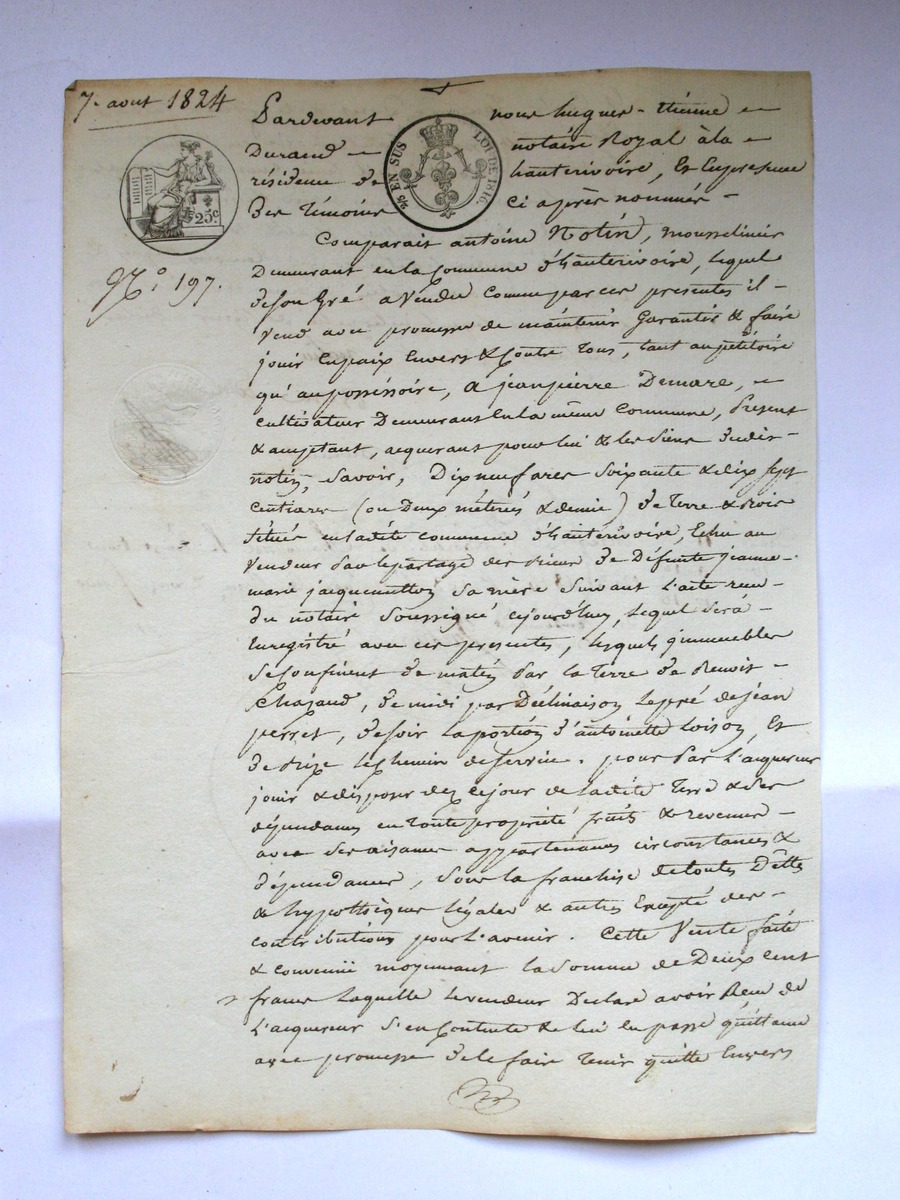 7. aout 1824
Pardevant nous hugues - étienne
Durand notaire Royal à la
résidence de hauterivoire, Et En presence
Des Témoins Ci après nommés -
EN SUS
LOI DE 1816
25c
N.o 197.
Comparait antoine Notin, mousselinier
Demeurant en la Commune d'hauterivoire, lequel
de son Gré a Vendu comme par ces presentes il -
Vend avec promesse de maintenir Garantir & faire
jouir En paix Envers & Contre Tous, tant au pétitoire
qu'au possessoire, a jean pierre Demare,
cultivateur Demeurant En la même Commune, Présent
& acceptant, acquerant pour lui & les siens dudit -
notin, savoir, Dix neuf ares Soixante & dix sept
Centiares (ou Deux méterés & demie) de Terre
situés en ladite commune d'hauterivoire, Echu au
Vendeur Par le partage des biens de Défunte jeanne -
marie jacquemetton sa mère Suivant L'acte recu
du notaire soussigné cejourd'huy, Lequel Sera -
Enregistré avec ces presentes, lesquels jmmeubles
se Confinent de matin Par la Terre de Benoit -
Chazaud, de midi par Déclinaison Le pré de jean
perret, de soir La portion d'antoinette Loison, Et
de Bize Le Chemin de service. pour Par L'acquereur
jouir & disposer dez ce jour de ladite Terre & des
dépendances en Toute propriété fruits & revenus -
avec ses aisances appartenances circonstances &
dépendances, sous la franchise de toutes Dettes
& hypothèques légales & autres Excepté des -
contributions pour L'avenir. Cette Vente faite
& convenue moyennant la somme de Deux Cent
francs Laquelle Le vendeur Declare avoir Recu de
L'acquereur S'en Contente & lui En passe quittance
avec promesse de le faire Tenir quitte Envers